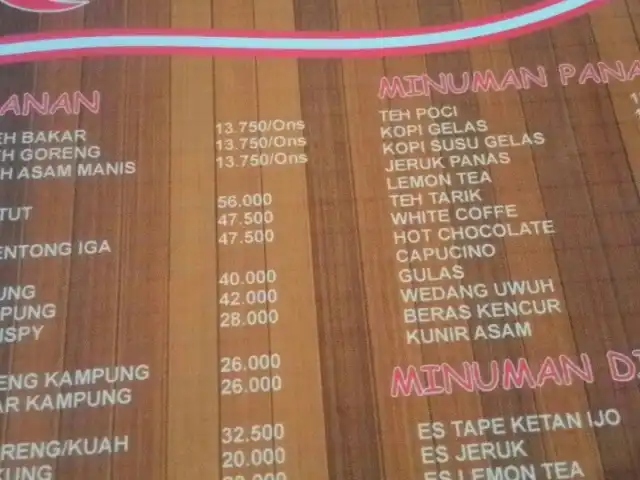 ANAN
EH BAKAR 13.750/Ons
EH GORENG 13.750/Ons
H ASAM MANIS 13.750/Ons
TUT 56.000
47.500
ENTONG IGA 47.500
UNG 40.000
PUNG 42.000
ISPY 28.000
ENG KAMPUNG 26.000
AR KAMPUNG 26.000
ORENG/KUAH 32.500
KUNG 20.000
MINUMAN PANA
TEH POCI
KOPI GELAS
KOPI SUSU GELAS
JERUK PANAS
LEMON TEA
TEH TARIK
WHITE COFFE
HOT CHOCOLATE
CAPUCINO
GULAS
WEDANG UWUH
BERAS KENCUR
KUNIR ASAM
MINUMAN DI
ES TAPE KETAN IJO
ES JERUK
ES LEMON TEA